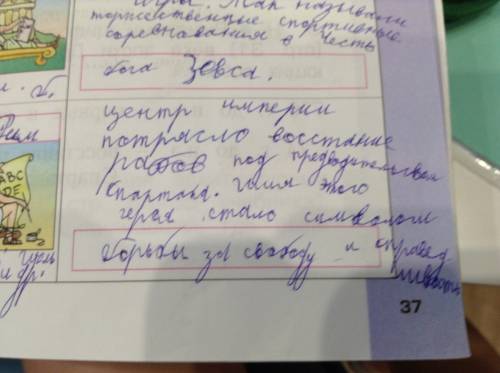 игры. Так называли
торжественные спортивные
соревнования в честь
бога Зевса.
Рим
центр империи
потрясло восстание
рабов под предводительством
Спартака. Имя этого
героя стало символом
борьбы за свободу и справед
ливость
ABC
DE
и др.
37